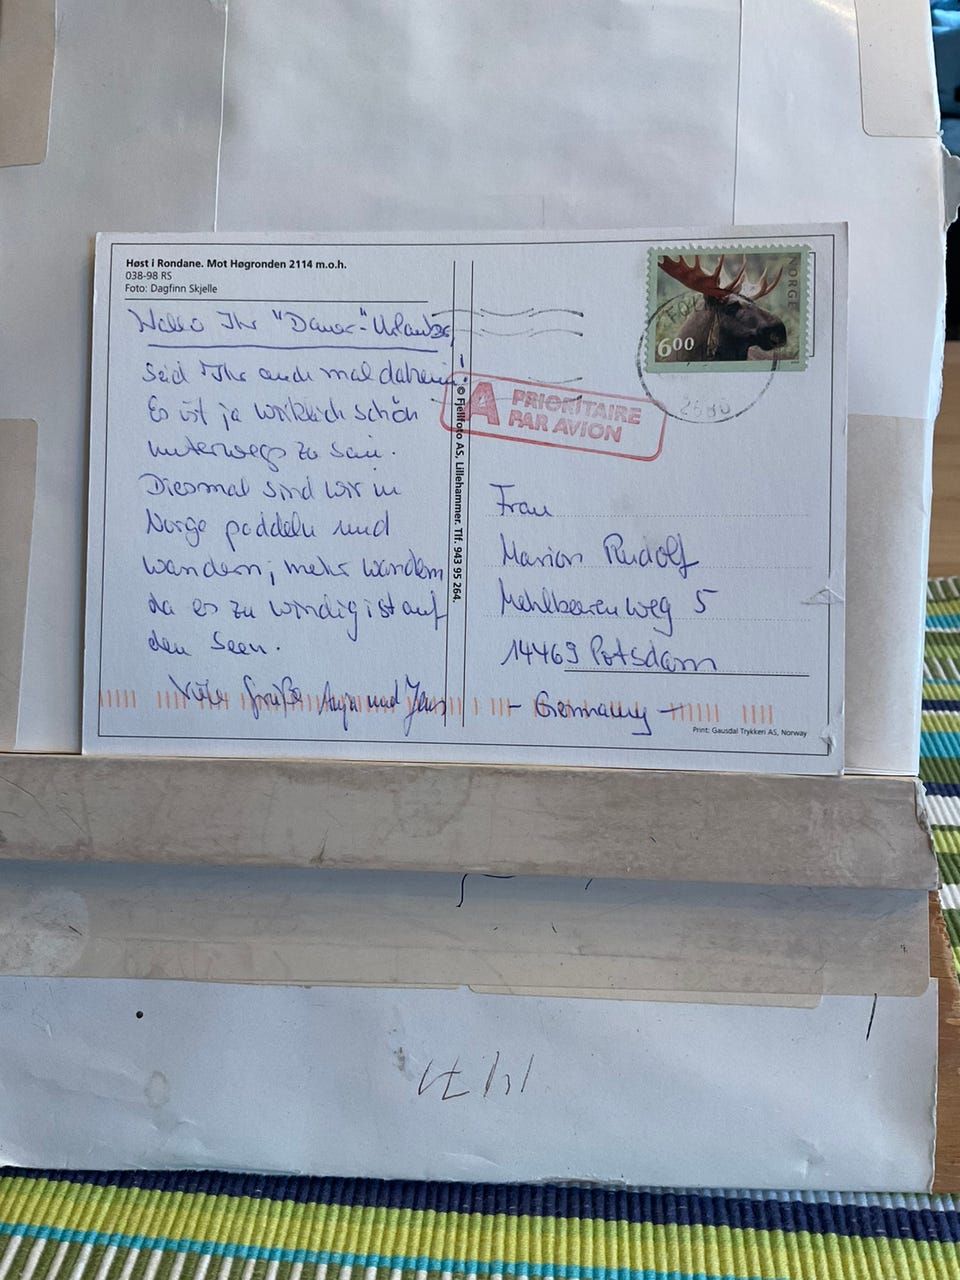 Høst i Rondane. Mot Høgronden 2114 m.o.h.
038-98 RS
Foto: Dagfinn Skjelle
Hallo Ihr "Dauer-"Urlauber,
Seid Ihr auch mal daheim!
Es ist ja wirklich schön
unterwegs zu sein.
Diesmal sind wir in
Norge paddeln und
wandern, mehr wandern
da es zu windig ist auf
den Seen.
Viele Grüße Anja und Jens
© Fjellfoto AS, Lillehammer. Tlf. 943 95 264.
NORGE
6⁰⁰
2680
A PRIORITAIRE
PAR AVION
Frau
Marion Rudolf
Mehlbeerenweg 5
14469 Potsdam
- Germany -
Print: Gausdal Trykkeri AS, Norway